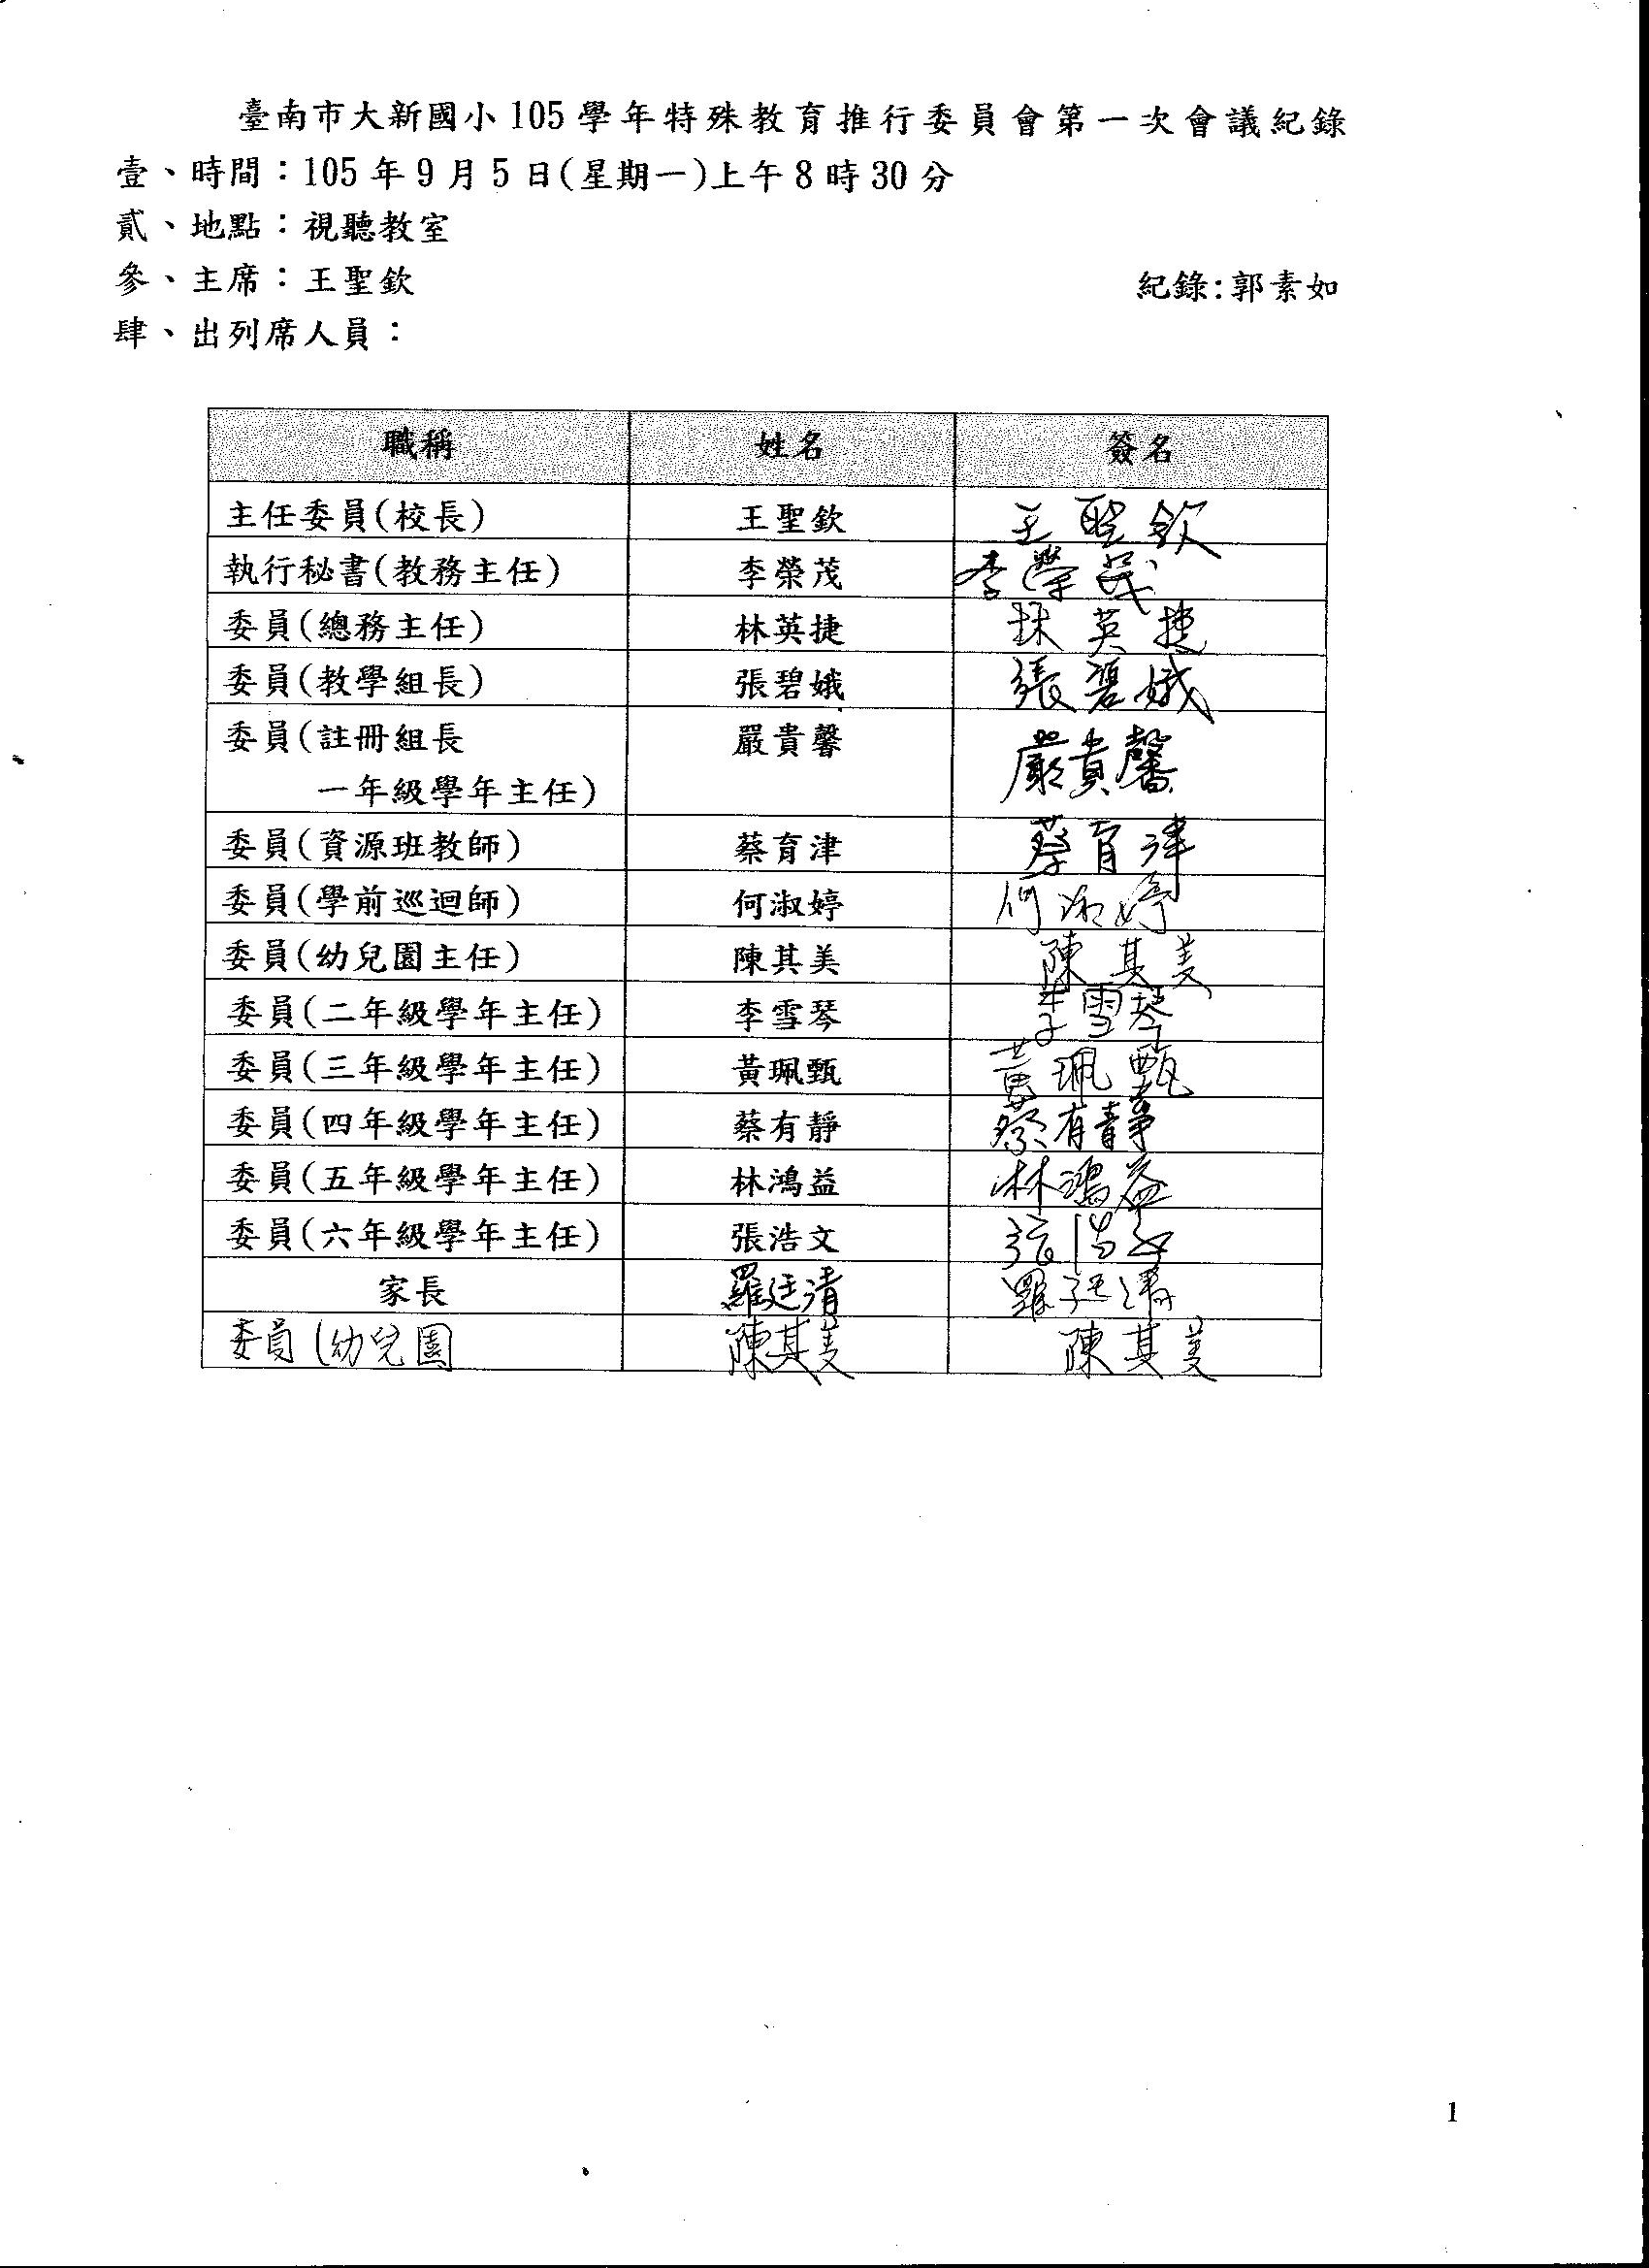 臺南市大新國小105學年特殊教育推行委員會第一次會議紀錄
壹、時間：105年9月5日(星期一)上午8時30分
貳、地點：視聽教室
參、主席：王聖欽 紀錄:郭素如
肆、出列席人員：
職稱 姓名 簽名
主任委員(校長) 王聖欽 王聖欽
執行秘書(教務主任) 李榮茂 李榮茂
委員(總務主任) 林英捷 林英捷
委員(教學組長) 張碧娥 張碧娥
委員(註冊組長 嚴貴馨 嚴貴馨
一年級學年主任)
委員(資源班教師) 蔡育津 蔡育津
委員(學前巡迴師) 何淑婷 何淑婷
委員(幼兒園主任) 陳其美 陳其美
委員(二年級學年主任) 李雪琴 李雪琴
委員(三年級學年主任) 黃珮甄 黃珮甄
委員(四年級學年主任) 蔡有靜 蔡有靜
委員(五年級學年主任) 林鴻益 林鴻益
委員(六年級學年主任) 張浩文 張浩文
家長 羅廷清 羅廷清
委員(幼兒園 陳其美 陳其美
1